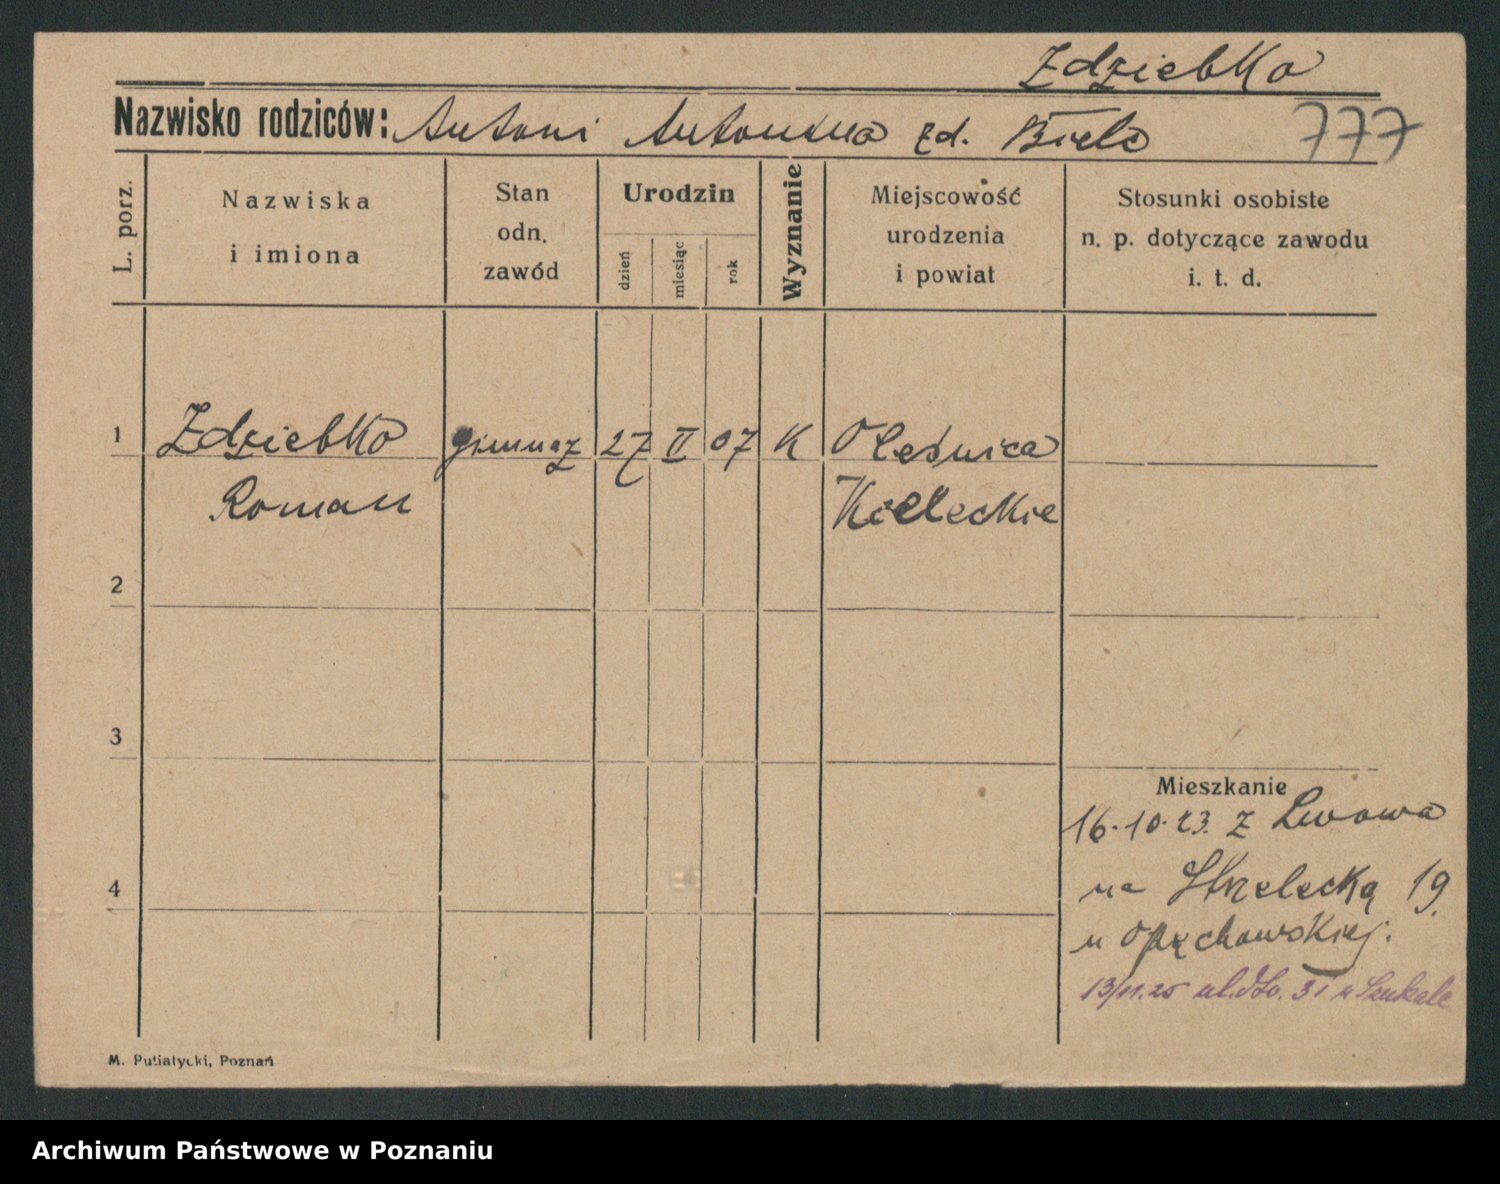 Zdziebko
Nazwisko rodziców: Antoni Antonina zd. Bielo 777
L. porz.
Nazwiska
i imiona
Stan
odn.
zawód
Urodzin
dzień
miesiąc
rok
Wyznanie
Miejscowość
urodzenia
i powiat
Stosunki osobiste
n. p. dotyczące zawodu
i. t. d.
1 Zdziebko gimnaz 27 II 07 K Oleśnica
Roman Kieleckie
2
3
Mieszkanie
16.10.23. z Lwowa
4
na Strzelecką 19.
u Opęchowskiej.
13/11.25 ul. 31 u
M. Putiatycki, Poznań
Archiwum Państwowe w Poznaniu